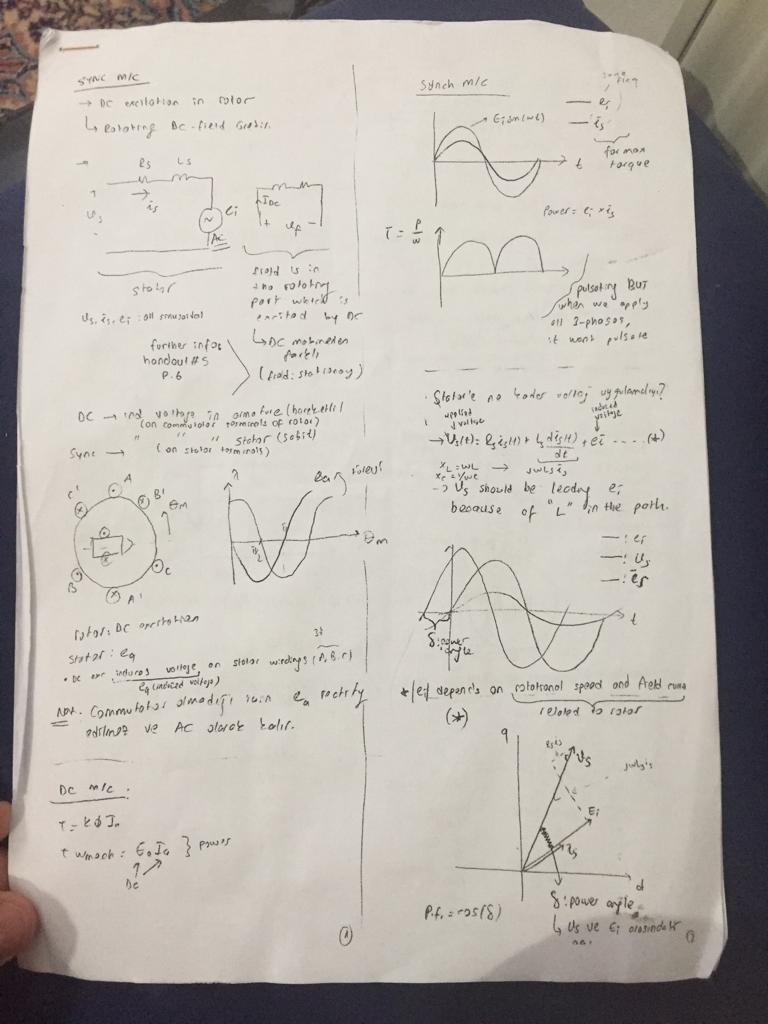 SYNC M/C
→ DC excitation in rotor
↳ Rotating DC-field
Rs Ls
is
us
ei
AC
IDC
+ uf -
stator
field is in
the rotating
part which is
excited by DC
us, is, ei : all sinusoidal
↳ DC makineden
farklı
(field: stationary)
further info:
handout #5
p. 6
DC → ind voltage in armature (hareketli)
(on commutator terminals of rotor)
Sync → " " " stator (sabit)
(on stator terminals)
A
C' B'
θm
B C
A'
λ
ea
π/2
π
θm
rotor: DC excitation
stator: ea
3φ
• DC exc induces voltage on stator windings (A, B, C)
ea (induced voltage)
Not. Commutator olmadığı için ea rectify
edilmez ve AC olarak kalır.
DC M/C.
T = kΦIa
T wmech = Ea Ia } power
DC
1
Synch M/C
same freq
— ei
— is
for max
torque
Ei sin(wt)
t
Power = ei × is
T = P/w
pulsating BUT
when we apply
all 3-phases,
it wont pulsate
• Stator'e ne kadar voltaj uygulamalıyız?
applied
voltage
induced
voltage
→ Vs(t) = Rs is(t) + Ls dis(t)/dt + ei .... (*)
XL = wL → jwLs is
Xc = 1/wC
→ Us should be leading ei
because of "L" in the path.
— : ei
— : us
t
δ: power
angle
* |ei| depends on rotational speed and field
related to rotor
(*)
q
Us
jwLsis
Ei
is
d
δ: power angle
↳ Us ve Ei arasındaki
P.f. = cos(δ)